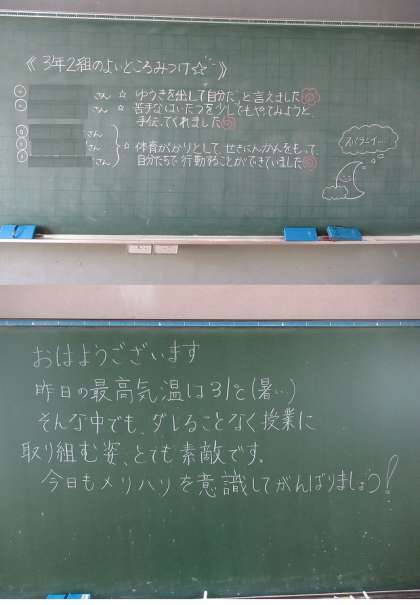 《3年2組のよいところみつけ☆》
さん ☆ ゆうきを出して「自分だ」と言えました
さん ☆ 苦手なはいたつを少しでもやってみようと、
手伝ってくれました
さん
さん ☆ 体育がかりとして、せきにんかんをもって、
自分たちで行動することができていました
おはようございます
昨日の最高気温は31℃(暑い)
そんな中でも、ダレることなく授業に
取り組む姿、とても素敵です。
今日もメリハリを意識してがんばりましょう!